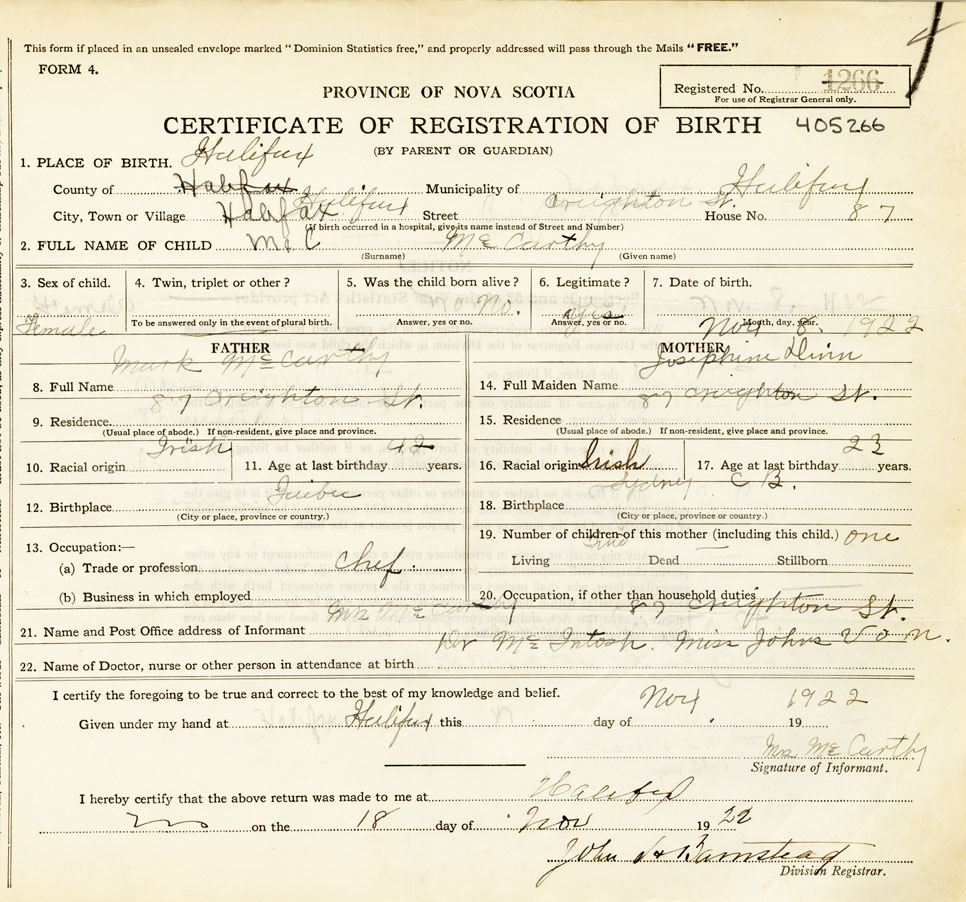 This form if placed in an unsealed envelope marked "Dominion Statistics free," and properly addressed will pass through the Mails "FREE."
FORM 4.
Registered No. 1266
For use of Registrar General only.
PROVINCE OF NOVA SCOTIA
CERTIFICATE OF REGISTRATION OF BIRTH 405266
(BY PARENT OR GUARDIAN)
1. PLACE OF BIRTH. Halifax
County of Halifax Municipality of Halifax
City, Town or Village Halifax Halifax Street Creighton St. House No. 87
(If birth occurred in a hospital, give its name instead of Street and Number)
2. FULL NAME OF CHILD McC McCarthy
(Surname) (Given name)
3. Sex of child. 4. Twin, triplet or other? 5. Was the child born alive? 6. Legitimate? 7. Date of birth.
Female No. Yes Nov 8. 1922
To be answered only in the event of plural birth. Answer, yes or no. Answer, yes or no. Month, day, year.
FATHER MOTHER
8. Full Name Mark McCarthy 14. Full Maiden Name Josephine
9. Residence 87 Creighton St. 15. Residence 87 Creighton St.
(Usual place of abode.) If non-resident, give place and province. (Usual place of abode.) If non-resident, give place and province.
10. Racial origin Irish 11. Age at last birthday 42 years. 16. Racial origin Irish 17. Age at last birthday 23 years.
12. Birthplace Quebec 18. Birthplace Sydney C B.
(City or place, province or country.) (City or place, province or country.)
13. Occupation:— 19. Number of children of this mother (including this child.) one
(a) Trade or profession Chef. Living Dead Stillborn
(b) Business in which employed 20. Occupation, if other than household duties
21. Name and Post Office address of Informant Mrs McCarthy 87 Creighton St.
22. Name of Doctor, nurse or other person in attendance at birth Dr McIntosh. Miss Johns V O N.
I certify the foregoing to be true and correct to the best of my knowledge and belief.
Given under my hand at Halifax this day of Nov 19 1922
Mrs McCarthy
Signature of Informant.
I hereby certify that the above return was made to me at Halifax
on the 18 day of Nov 1922
John H Barnstead
Division Registrar.